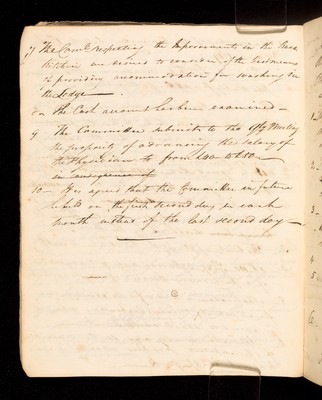 7 The Com.ee respecting the Improvements in the Back
Kitchen are desired to consider of the best means
of providing accommodation for washing in
the Lodge —
The Cash account has been examined —
9 The Committee submits to the Qly Meeting
the propriety of advancing the salary of
the Physician to from £40 to £50 —
in consequence of
10 — It is agreed that the Committee in future
be held on the first second day in each
month instead of the last second day —